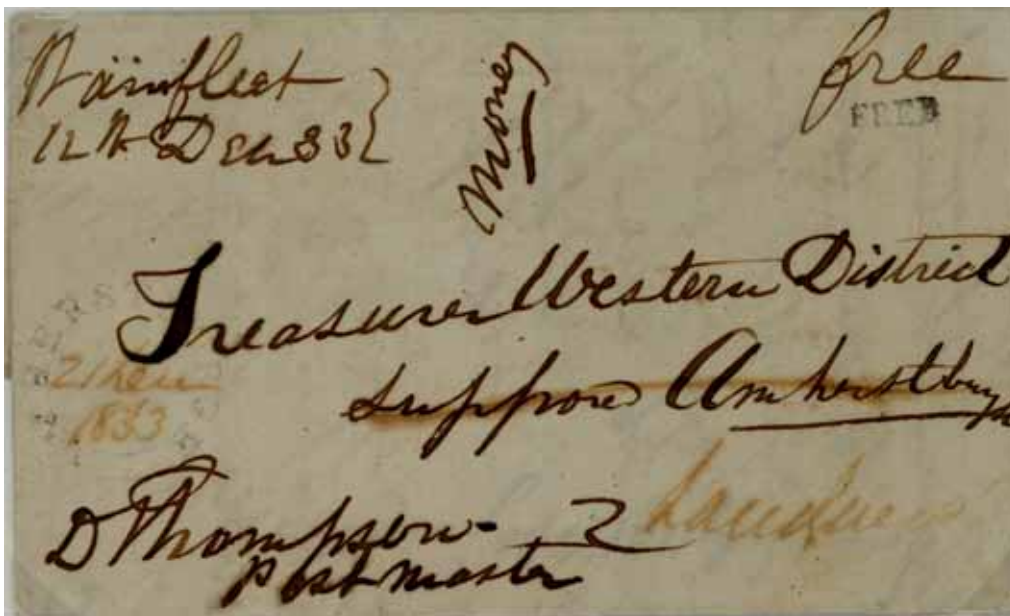 Wainfleet
12th Dec 33
Money
free
FREE
Treasurer Western District
suppose Amherstburgh
21 Decr
1833
Sandwich
D Thompson
Post Master